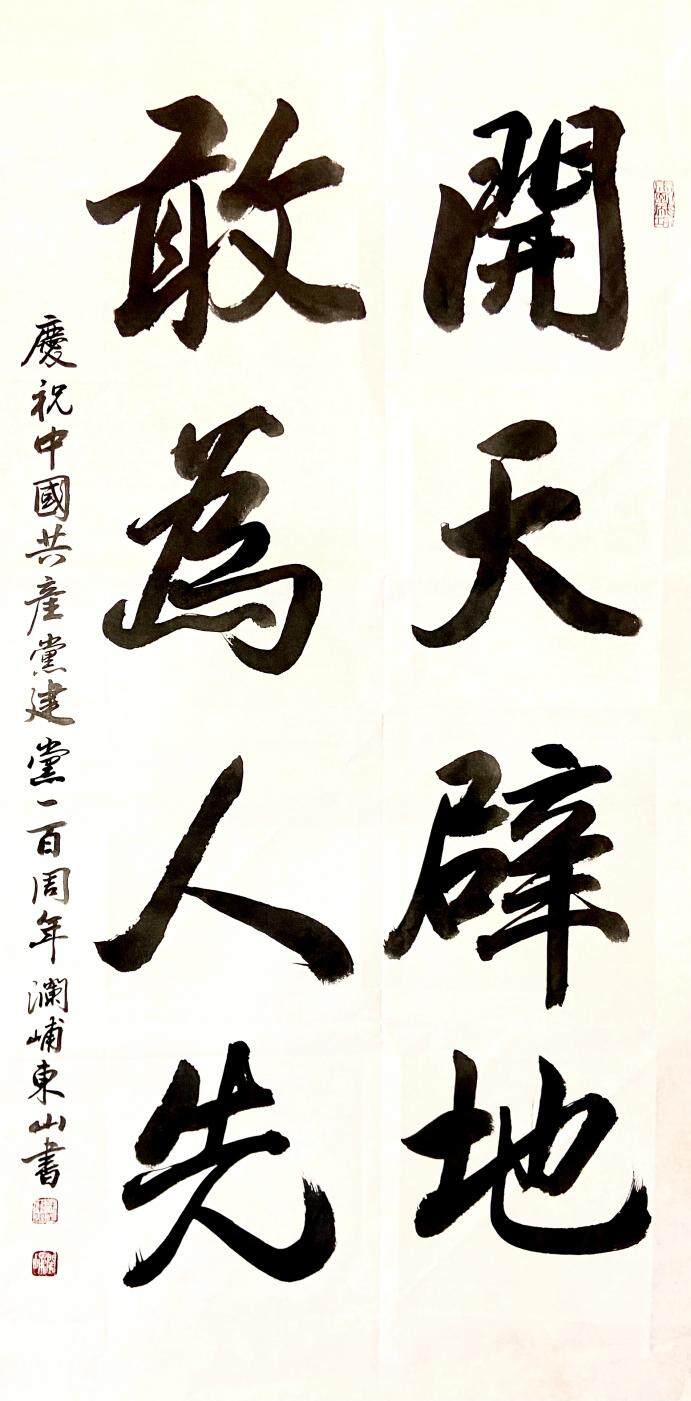 開天辟地
敢為人先
慶祝中國共產黨建黨一百周年瀾峬東山書